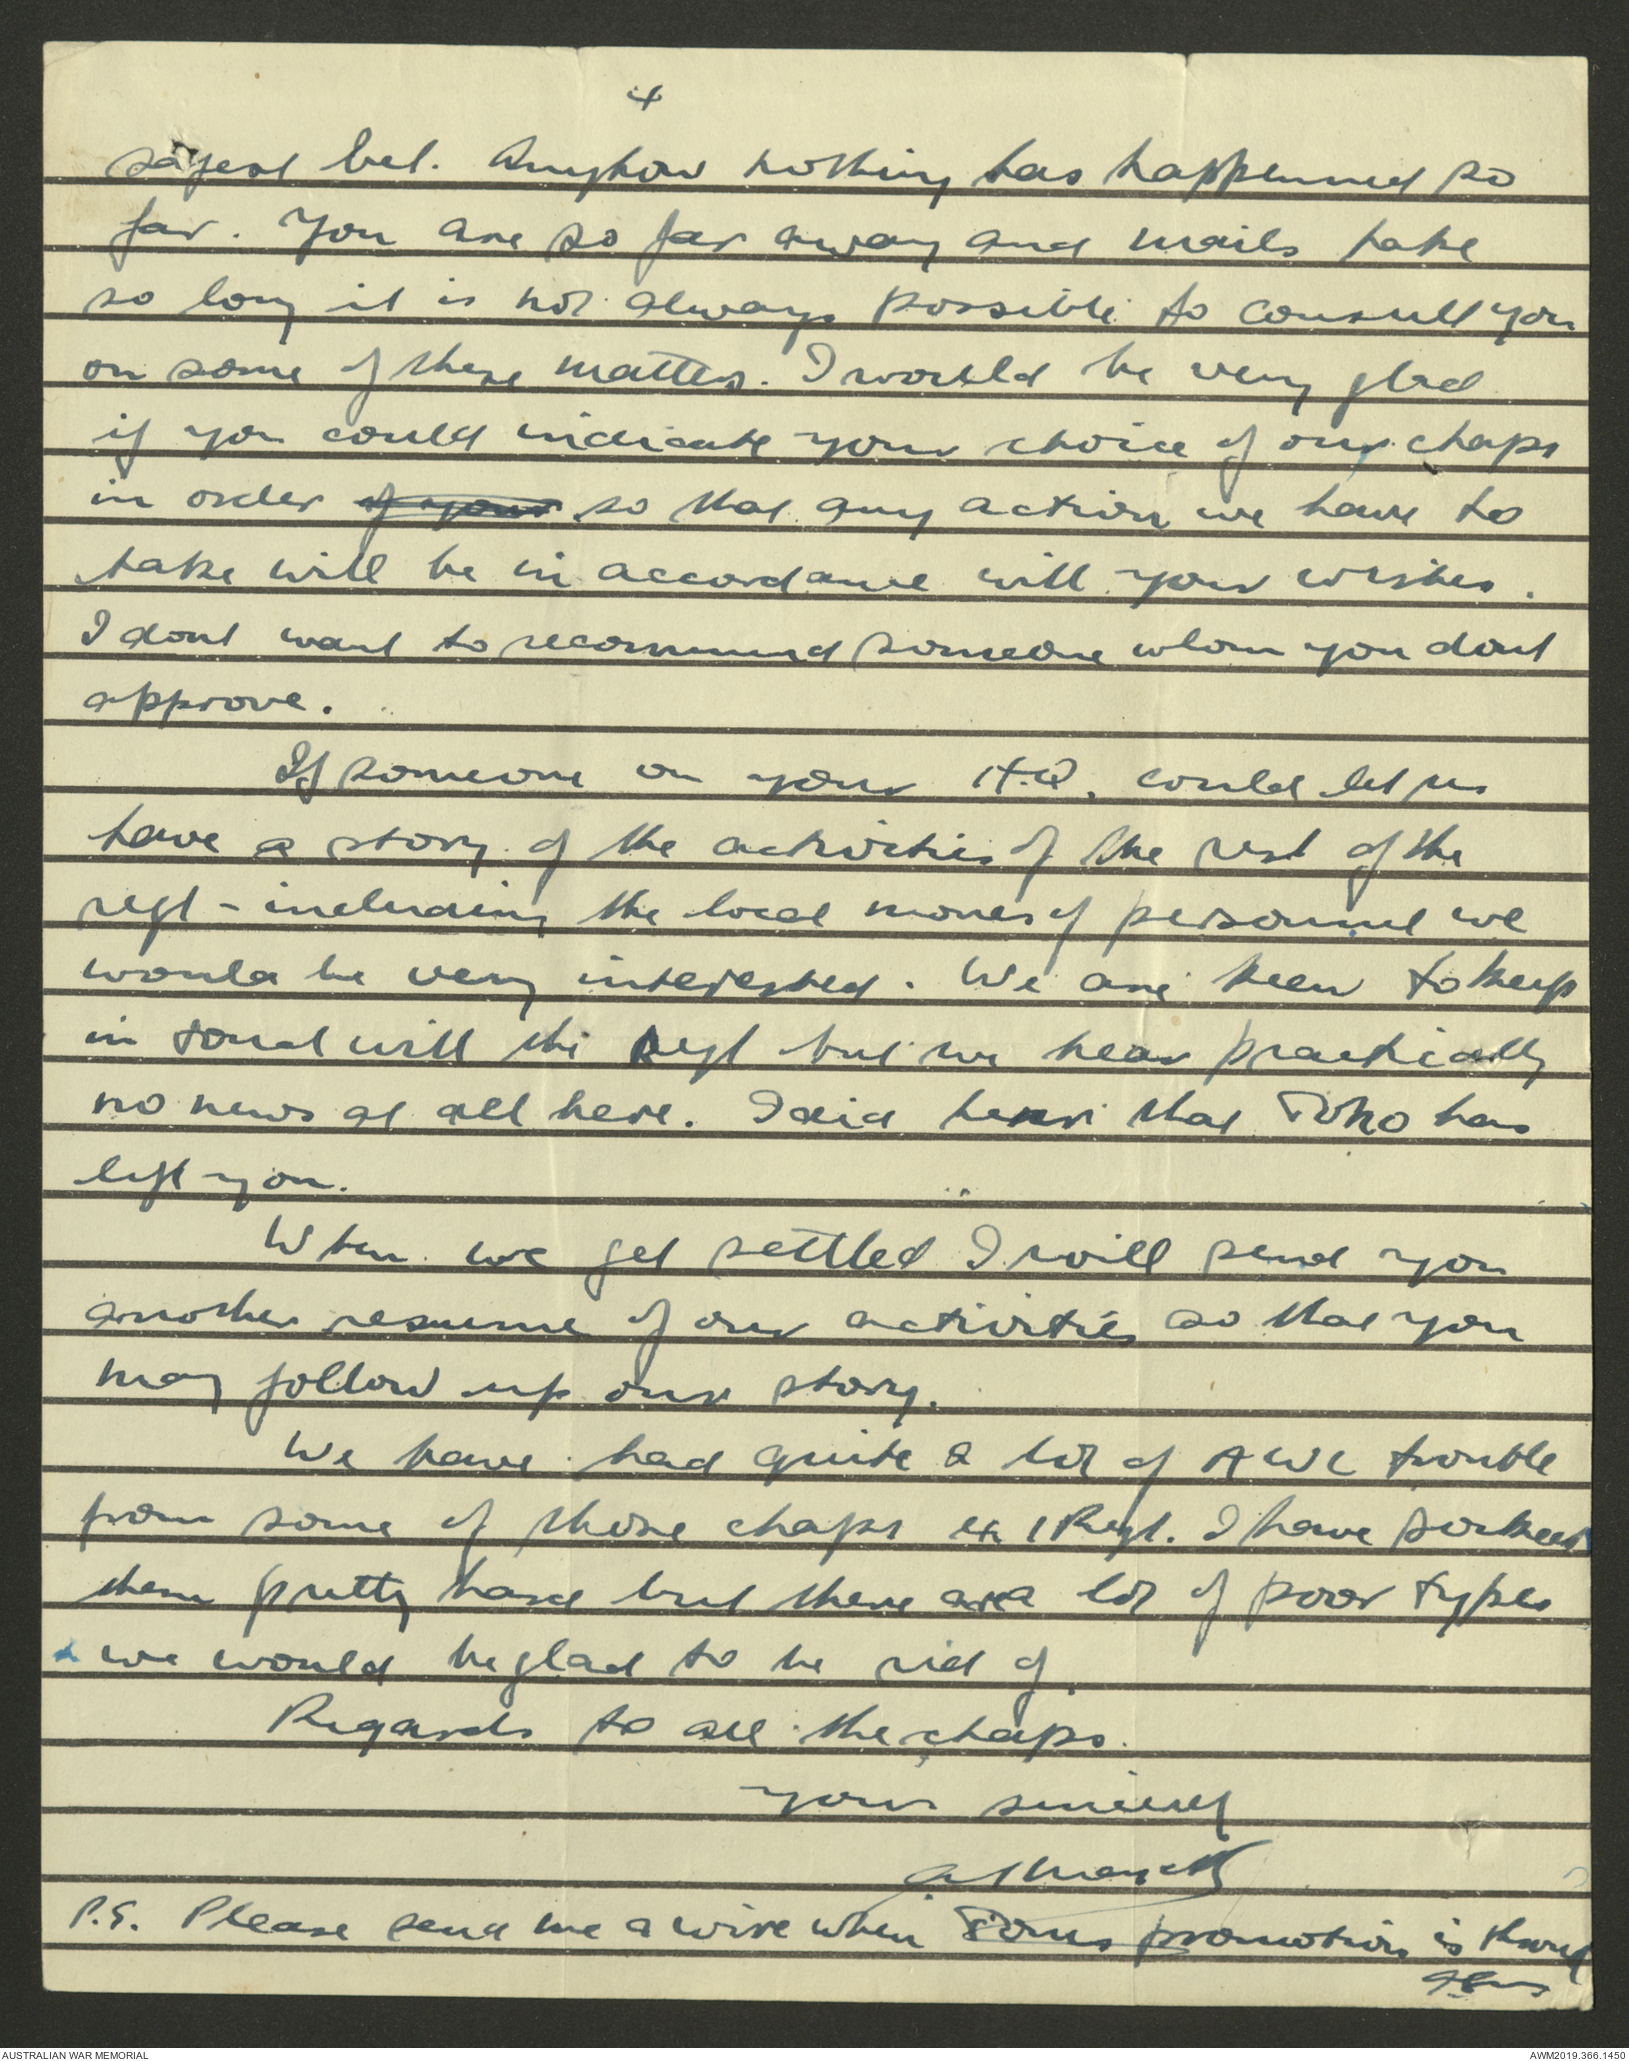 4
safest bet. Anyhow nothing has happened so
far. You are so far away and mails take
so long it is not always possible to consult you
on some of these matters. I would be very glad
if you could indicate your choice of our chaps
in order of your so that any action we have to
take will be in accordance with your wishes.
I dont want to recommend someone whom you dont
approve.
If someone on your H.Q. could let us
have a story of the activities of the rest of the
regt - including the local moves of personnel we
would be very interested. We are keen to keep
in touch with the Regt but we hear practically
no news at all here. I did hear that has
left you.
When we get settled I will send you
another resume of our activities so that you
may follow up our story.
We have had quite a lot of AWL trouble
from some of those chaps ex 1 Regt. I have
them pretty hard but there are a lot of poor types
& we would be glad to be rid of.
Regards to all the chaps.
Yours sincerely
P.S. Please send me a wire when promotion is through
AUSTRALIAN WAR MEMORIAL
AWM2019.366.1450